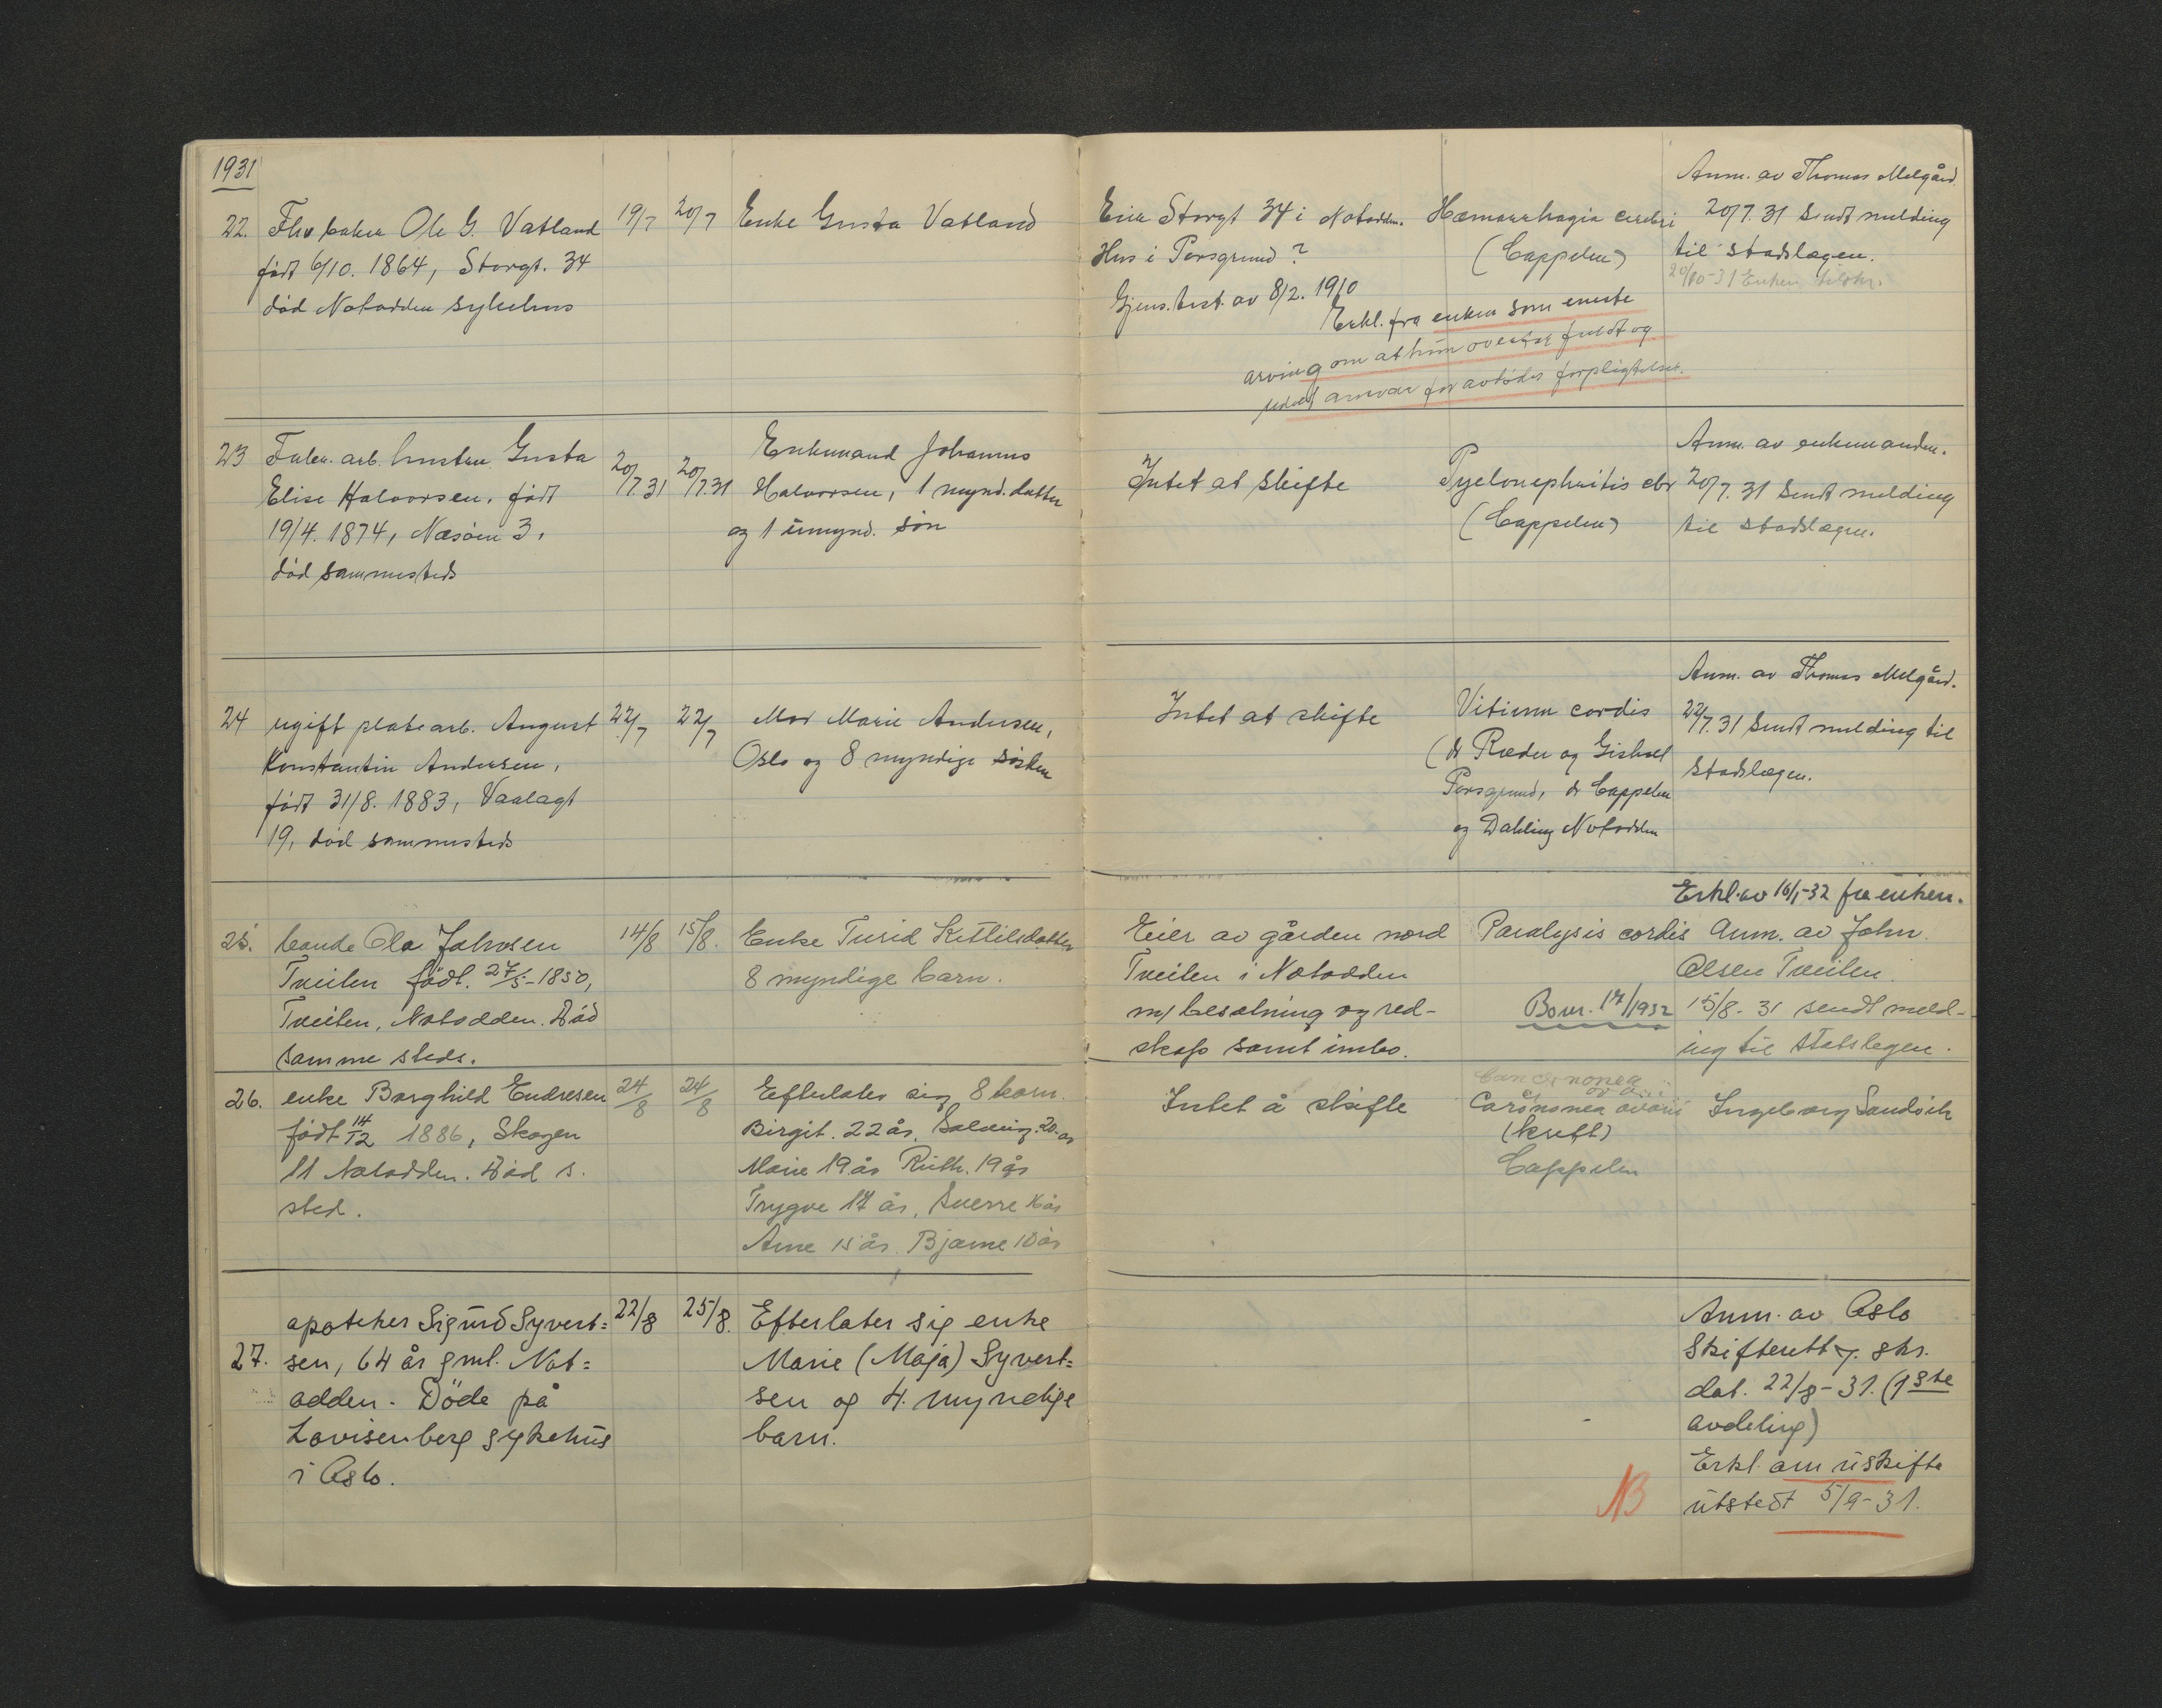 1931
22. Fhv baker Ole G. Vatland
født 6/10. 1864, Storgt. 34
død Notodden sykehus
19/7
20/7
Enke Gusta Vatland
Eier Storgt 34 i Notodden.
Hus i Porsgrund ?
Gjens. test. av 8/2. 1910
Erkl. fra enken som eneste
arving om at hun overtar fuldt og
udelt ansvar for avdødes forpligtelser.
Hæmorrhagia cerebri
(Cappelen)
Anm. av Thomas Melgård
20/7. 31 Sendt melding
til stadslægen.
20/10-31 Enken tilskr.
23 Fabr. arb. hustru Gusta
Elise Halvorsen, født
19/4. 1874, Næsøen 3,
død sammesteds
20/7.31
20/7.31
Enkemand Johannes
Halvorsen, 1 mynd. datter
og 1 umynd. søn
Intet at skifte
Pyelonephritis chr
(Cappelen)
Anm. av enkemanden.
20/7. 31 Sendt melding
til stadslægen.
24 ugift platearb. August
Konstantin Andersen,
født 31/8. 1883, Vaalagt
19, død sammesteds
22/7
22/7
Mor Marie Andersen,
Oslo og 8 myndige søsken
Intet at skifte
Vitium cordis
(dr Ræder og Gisholt
Porsgrund, dr Cappelen
og Dahling Notodden
Anm. av Thomas Melgård.
22/7. 31 Sendt melding til
Stadslægen.
25. bonde Ola Johnsen
Tveiten født. 27/5-1850,
Tveiten, Notodden. Død
samme steds.
14/8
15/8.
Enke Turid Kettilsdatter
8 myndige barn.
Eier av gården nord
Tveiten i Notodden
m/ besætning og red-
skap samt innbo.
Paralysis cordis
Bovr. 17/1932
Erkl. av 16/1-32 fra enken.
Anm. av John
Olsen Tveiten.
15/8-31 sendt meld-
ing til statslegen.
26. enke Borghild Endresen
født 14/12 1886, Skogen
11 Notodden. Død s.
sted.
24/8
24/8
Efterlater sig 8 barn.
Birgit. 22 år, Solveig. 20 år
Marie 19 år Ruth. 19 år
Trygve 17 år, Sverre 16 år
Arne 15 år. Bjarne 10 år
Intet å skifte
Carcinonea
Carcinonea ovarii
(kreft)
Cappelen
Ingeborg Sandvik
apoteker Sigurd Syvert=
27. sen, 64 år gml. Not=
odden. Döde på
Lovisenberg sykehus
i Oslo.
22/8
25/8.
Efterlater sig enke
Marie (Maja) Syvert=
sen og 4. myndige
barn.
Anm. av Oslo
Skifterett g. skr.
dat. 22/8-31. (1ste
avdeling)
Erkl. om uskifte
utstedt 5/9-31.
NB